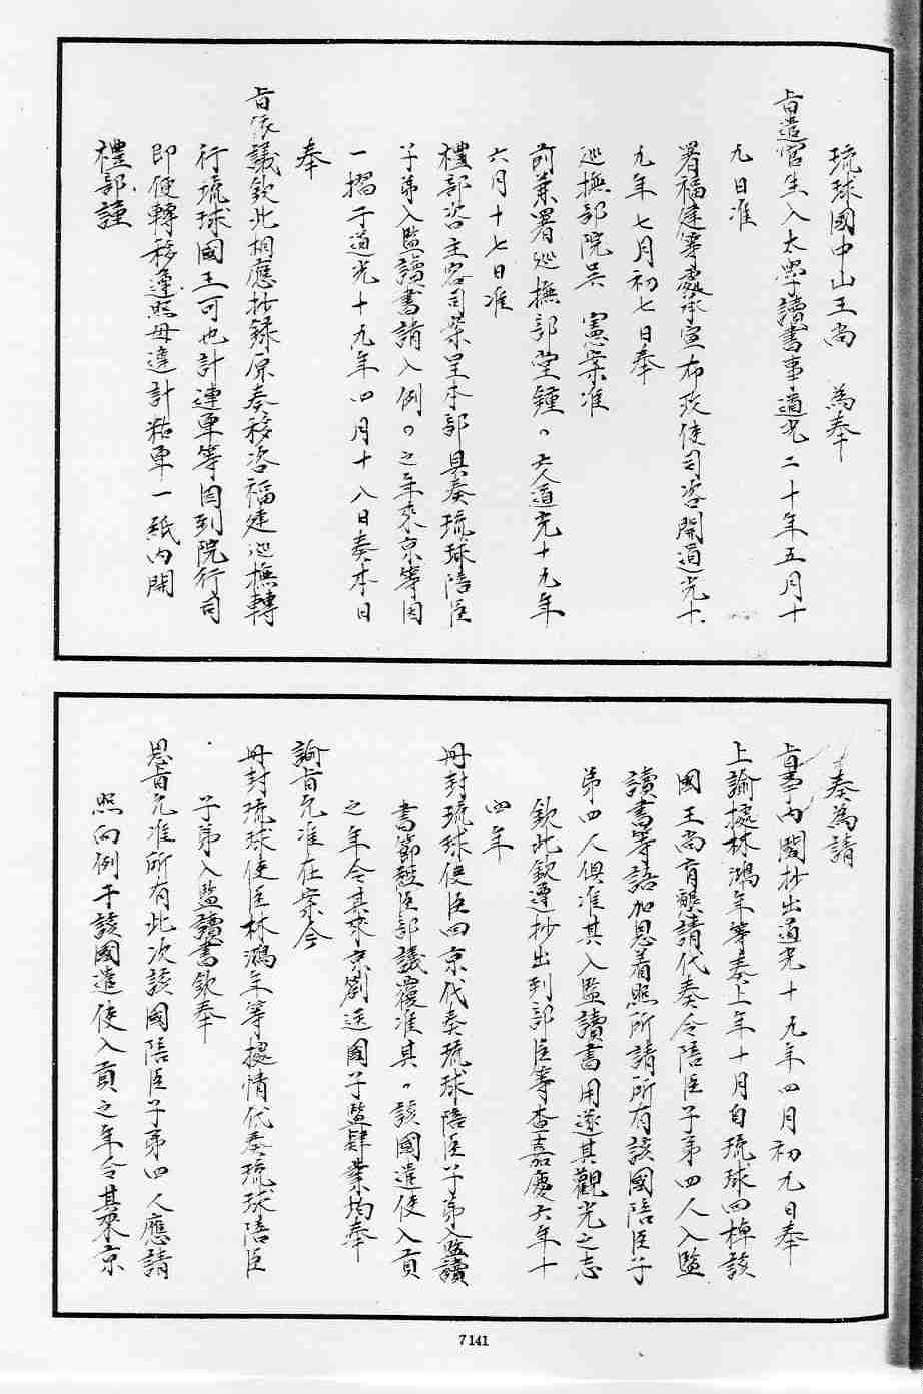 琉球國中山王尚　為奉
旨遣官生入太學讀書事道光二十年五月十
九日准
署福建等處承宣布政使司咨開道光十
九年七月初七日奉
巡撫部院吳　憲案准
前兼署巡撫部堂鍾
六月十七日准
禮部咨主客司案呈本部具奏琉球陪臣
子弟入監讀書請入例〇之年來京等因
一摺于道光十九年四月十八日奏本日
奉
旨依議欽此相應抄錄原奏移咨福建巡撫轉
行琉球國王可也計連單等因到院行司
即便轉移遵照毋違計粘單一紙內開
禮部謹
奏為請
旨事內閣抄出道光十九年四月初九日奉
上諭據林鴻年等奏上年十月自琉球回棹該
國王尚育懇請代奏令陪臣子弟四人入監
讀書等語加恩着照所請所有該國陪臣子
弟四人俱准其入監讀書用遂其觀光之志
欽此欽遵抄出到部臣等查嘉慶六年十
四年
冊封琉球使臣回京代奏琉球陪臣子弟入監讀
書節經臣部議覆准其該國遣使入貢
之年令其來京劄送國子監肄業均奉
諭旨允准在案今
冊封琉球使臣林鴻年等據情代奏琉球陪臣
子弟入監讀書欽奉
恩旨允准所有此次該國陪臣子弟四人應請
照向例于該國遣使入貢之年令其來京
7141